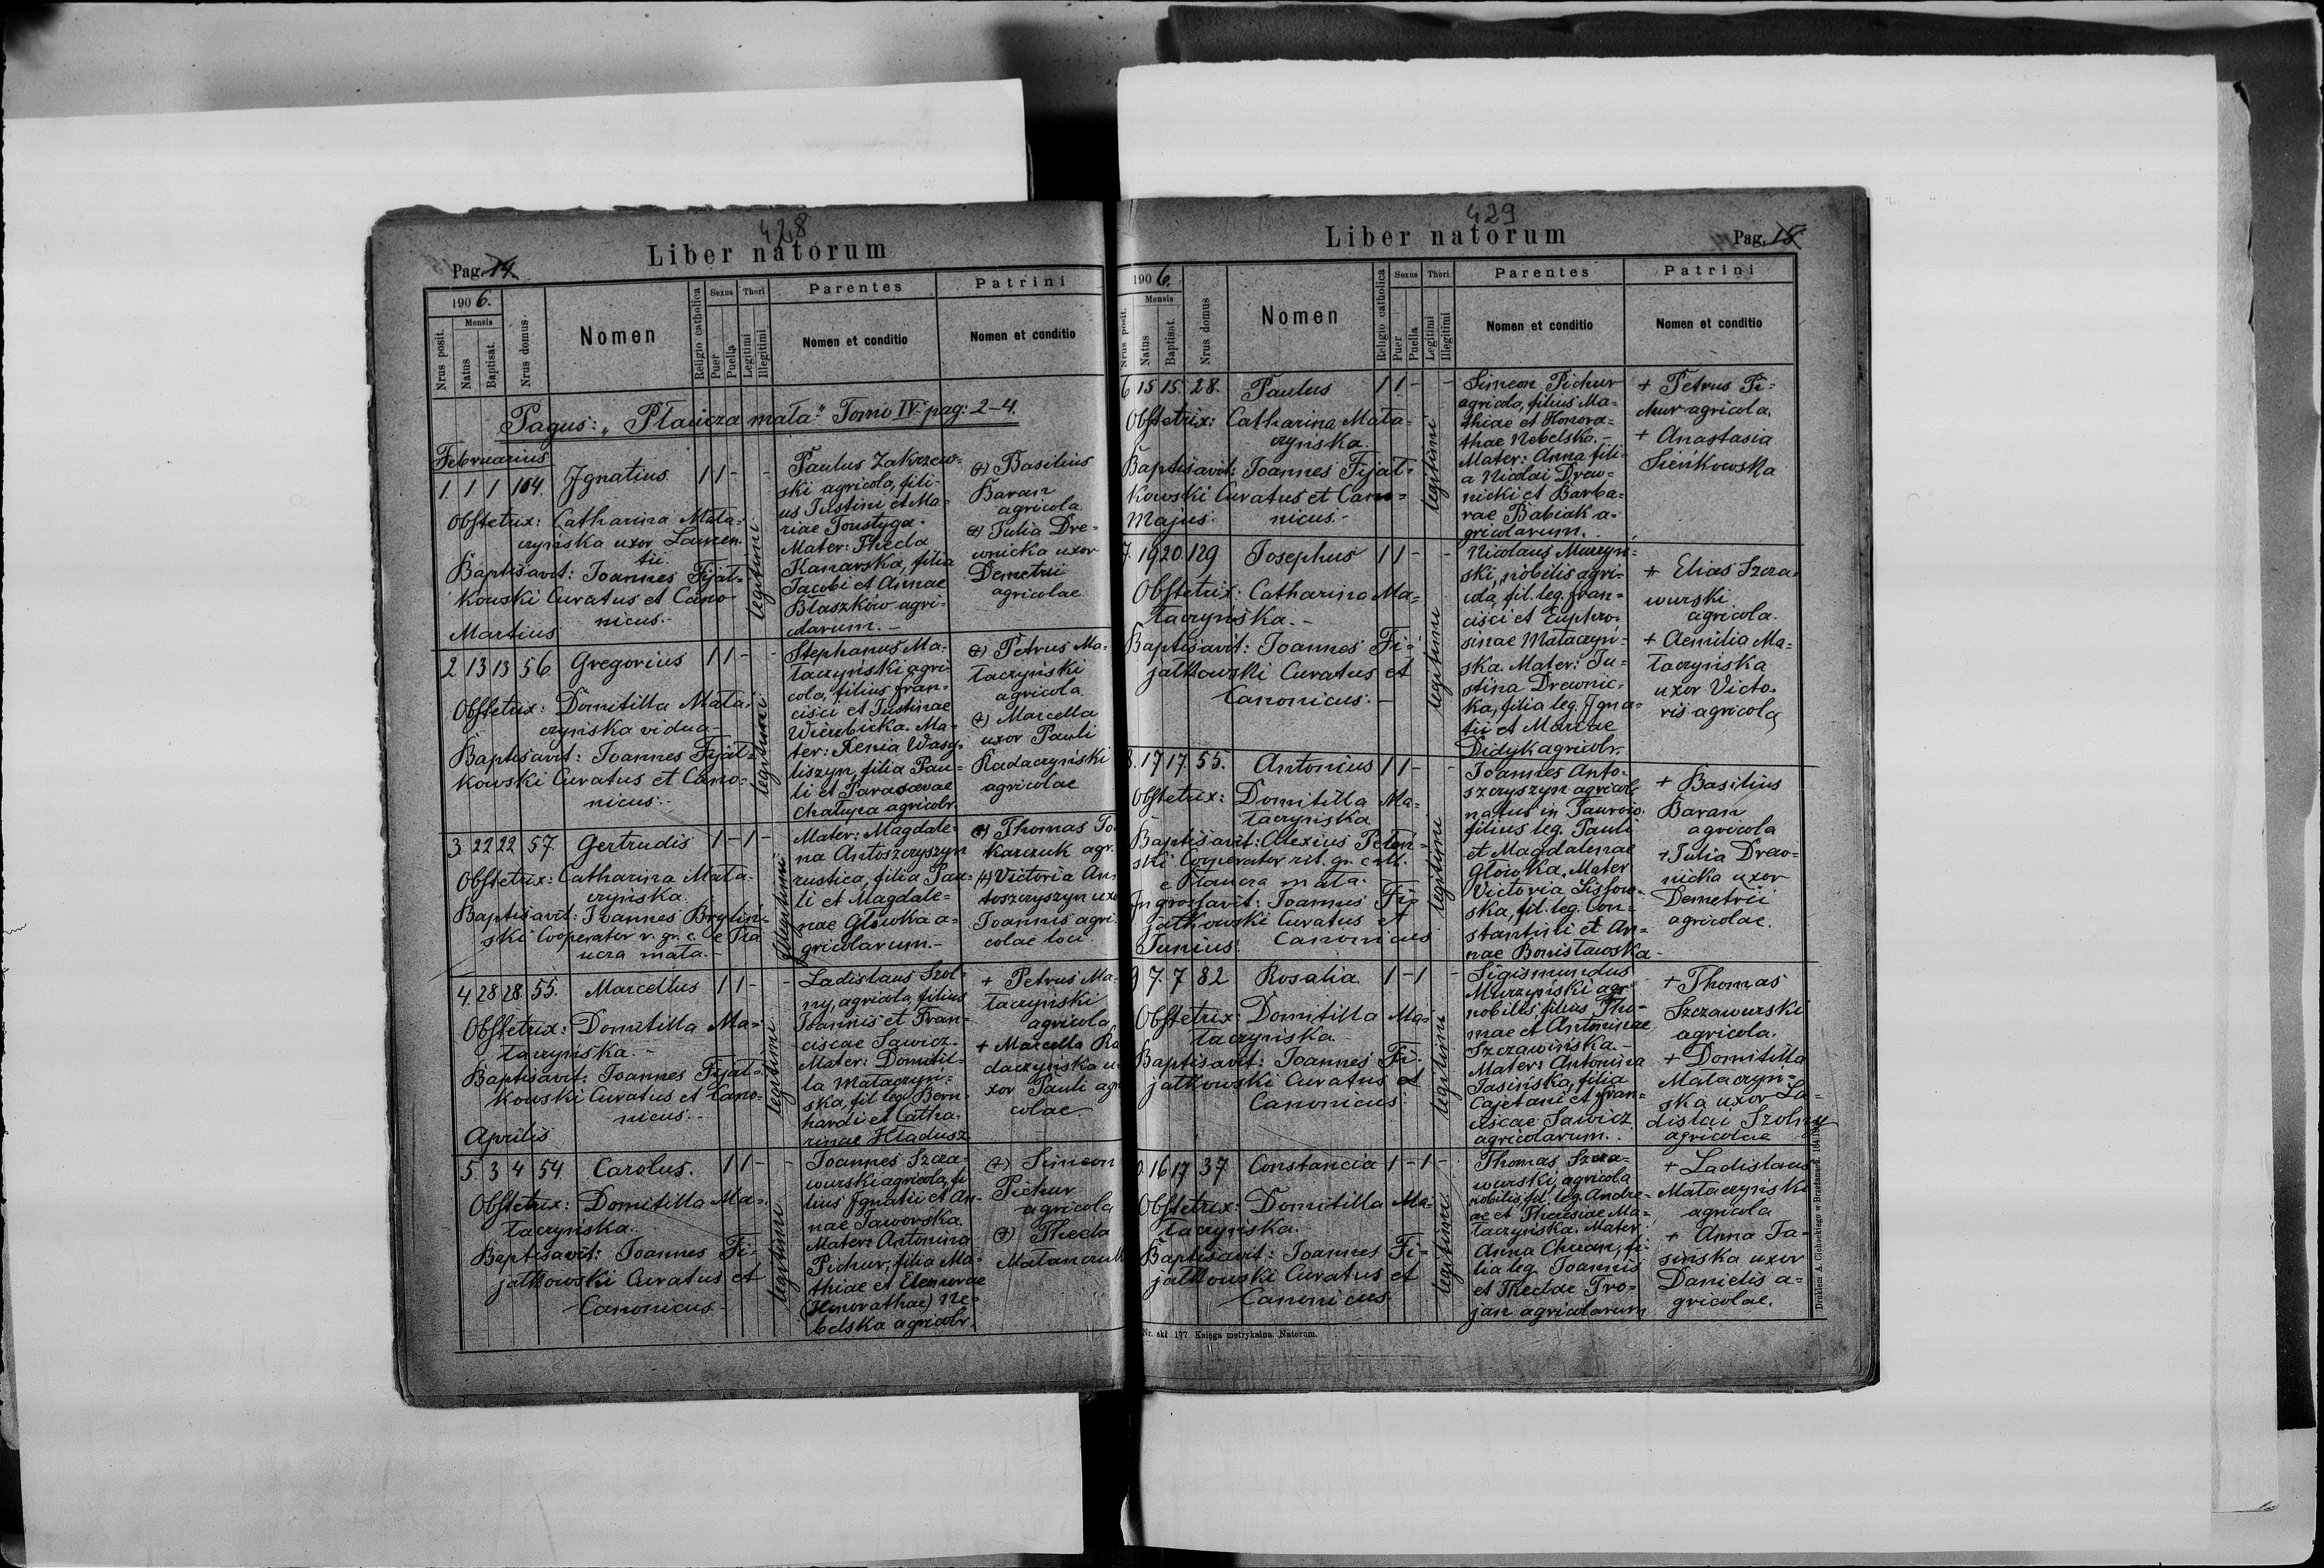 428
Liber natorum
Pag. 14
190 6.
Nrus posit.
Mensis
Natus
Baptisat.
Nrus domus.
Nomen
Religio catholica
Sexus
Puer
Puella
Thori
Legitimi
Illegitimi
Parentes
Nomen et conditio
Patrini
Nomen et conditio
Pagus: „Płaucza mała" Tomo IV. pag: 2-4.
Februarius
1. 1 1 104. Ignatius 1 1 - -
Obstetrix: Catharina Mata=
czyńska uxor Lauren
tii.
Baptisavit: Joannes Fijał=
kowski Curatus et Cano
nicus.-
legitimi
Paulus Zakrzew=
ski agricola, fili=
us Justini et Ma=
riae Toustyga.
Mater: Thecla
Kanarska, filia
Jacobi et Annae
Błaszków agri=
colarum.-
(+) Basilius
Baran
agricola
(+) Julia Dre=
wnicka uxor
Demetrii
agricolae
Martius
2 13 13 56 Gregorius 1 1 - -
Obstetrix: Domitilla Mata=
czyńska vidua-
Baptisavit: Joannes Fijał=
kowski Curatus et Cano=
nicus.-
legitimi
Stephanus Ma=
taczyński agri=
cola, filius Fran=
cisci et Justinae
Wierzbicka. Ma=
ter: Xenia Wasy=
liszyn, filia Pau=
li et Parascevae
Chałupa agricolr.
(+) Petrus Ma=
taczyński
agricola
(+) Marcella
uxor Pauli
Radaczyński
agricolae
3 22 22 57. Gertrudis 1 - 1 -
Obstetrix: Catharina Mata=
czyńska.
Baptisavit: Joannes Bryliń=
ski Cooperator r. gr. c. e Pła
ucza mała.-
Illegitimi
Mater: Magdale=
na Antoszczyszyn
rustica, filia Pau=
li et Magdale=
nae Głowka a=
gricolarum.-
(+) Thomas To
karczuk agr.
(+) Victoria An=
toszczyszyn uxo
Joannis agri=
colae loci.
4 28 28 55. Marcellus 1 1 - -
Obstetrix: Domitilla Ma=
taczyńska.-
Baptisavit: Joannes Fijał=
kowski Curatus et Cano=
nicus.-
legitimi
Ladislaus Szol=
ny, agricola, filius
Joannis et Fran=
ciscae Sawicz.
Mater: Domitil=
la Mataczyń=
ska, fil. leg. Bern=
hardi et Catha=
rinae Hładusz
+ Petrus Ma=
taczyński
agricola
+ Marcella Ra
daczyńska u=
xor Pauli agri
colae
Aprilis
5. 3 4 54. Carolus. 1 1 - -
Obstetrix: Domitilla Ma=
taczyńska.
Baptisavit: Joannes Fi=
jałkowski Curatus et
Canonicus-
legitimi
Joannes Szcza=
wurski agricola, fi
lius Ignatii et An=
nae Jaworska.
Mater: Antonina
Pichur, filia Ma=
thiae et Eleonorae
(Honorathae) Ne=
belska agricolr.
(+) Simeon
Pichur
agricola
(+) Thecla
429
Liber natorum
Pag. 15
190 6.
Nrus posit.
Mensis
Natus
Baptisat.
Nrus domus
Nomen
Religio catholica
Sexus
Puer
Puella
Thori
Legitimi
Illegitimi
Parentes
Nomen et conditio
Patrini
Nomen et conditio
6 15 15. 28. Paulus 1 1 - -
Obstetrix: Catharina Mata=
czyńska.
Baptisavit: Joannes Fijał=
kowski Curatus et Cano=
nicus.-
legitimi
Simeon Pichur
agricola, filius Ma=
thiae et Honora=
thae Nebelska.-
Mater: Anna fili=
a Nicolai Drew=
nicki et Barba=
rae Babiak a=
gricolarum.
+ Petrus Pi=
chur agricola.
+ Anastasia
Sieńkowska
Majus
7. 19 20 129 Josephus 1 1 - -
Obstetrix: Catharina Ma=
taczyńska.-
Baptisavit: Joannes Fi=
jałkowski Curatus et
Canonicus.-
legitimi
Nicolaus Murzyń=
ski, nobilis agri=
cola, fil. leg. Fran=
cisci et Euphro=
sinae Mataczyń=
ska. Mater: Ju=
stina Drewnic=
ka, filia leg. Igna=
tii et Mariae
Didyk agricolr.
+ Elias Szcza=
wurski
agricola.
+ Aemilia Ma=
taczyńska
uxor Victo=
ris agricola
8. 17 17 55. Antonius 1 1 - -
Obstetrix: Domitilla Ma=
taczyńska
Baptisavit: Alexius
ski Cooperator rit. gr. cath.
e Płaucza mała.
Ingrossavit: Joannes Fi=
jałkowski Curatus et
Canonicus
legitimi
Joannes Anto=
szczyszyn agricola
natus in
filius leg. Pauli
et Magdalenae
Głowka. Mater
Victoria Lisow=
ska, fil. leg. Con=
stantini et An=
nae Bonisławska-
+ Basilius
Baran
agricola
+ Julia Drew=
nicka uxor
Demetrii
agricolae.
Junius:
9 7. 7 82 Rosalia 1 - 1 -
Obstetrix: Domitilla Ma=
taczyńska
Baptisavit: Joannes Fi=
jałkowski Curatus et
Canonicus.
legitimi
Sigismundus
Murzyński agr.
nobilis, filius Tho=
mae et Antoninae
Szczawińska.-
Mater: Antonina
Jasińska, filia
Cajetani et Fran=
ciscae Sawicz
agricolarum.
+ Thomas
Szczawurski
agricola.
+ Domitilla
Mataczyń=
ska uxor La=
dislai Szolny
agricolae
16 17 37 Constancia 1 - 1 -
Obstetrix: Domitilla Ma=
taczyńska.
Baptisavit: Joannes Fi=
jałkowski Curatus et
Canonicus
legitimi
Thomas Szcza=
wurski, agricola
nobilis, fil. leg. Andre=
ae et Theresiae Ma=
taczyńska. Mater
Anna Churan, fi=
lia leg. Joannis
et Theclae Tro=
jan agricolarum
+ Ladislaus
Mataczyński
agricola
+ Anna Ja=
sińska uxor
Danielis a=
gricolae.
Nr. skł. 177. Księga metrykalna. Natorum.
Drukiem A. Cichockiego w Brzeżanach.